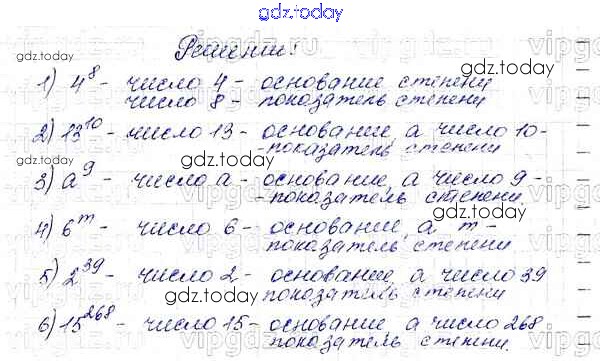 gdz.today
gdz.today
Решение:
1) 4⁸ - число 4 - основание степени
число 8 - показатель степени
gdz.today
2) 13¹⁰ - число 13 - основание, а число 10 -
- показатель степени
gdz.today
3) a⁹ - число a - основание, а число 9 -
- показатель степени.
gdz.today
4) 6ᵐ - число 6 - основание, а m -
- показатель степени.
gdz.today
5) 2³⁹ - число 2 - основание, а число 39
показатель степени
gdz.today
6) 15²⁶⁸ - число 15 - основание, а число 268
показатель степени.
gdz.today